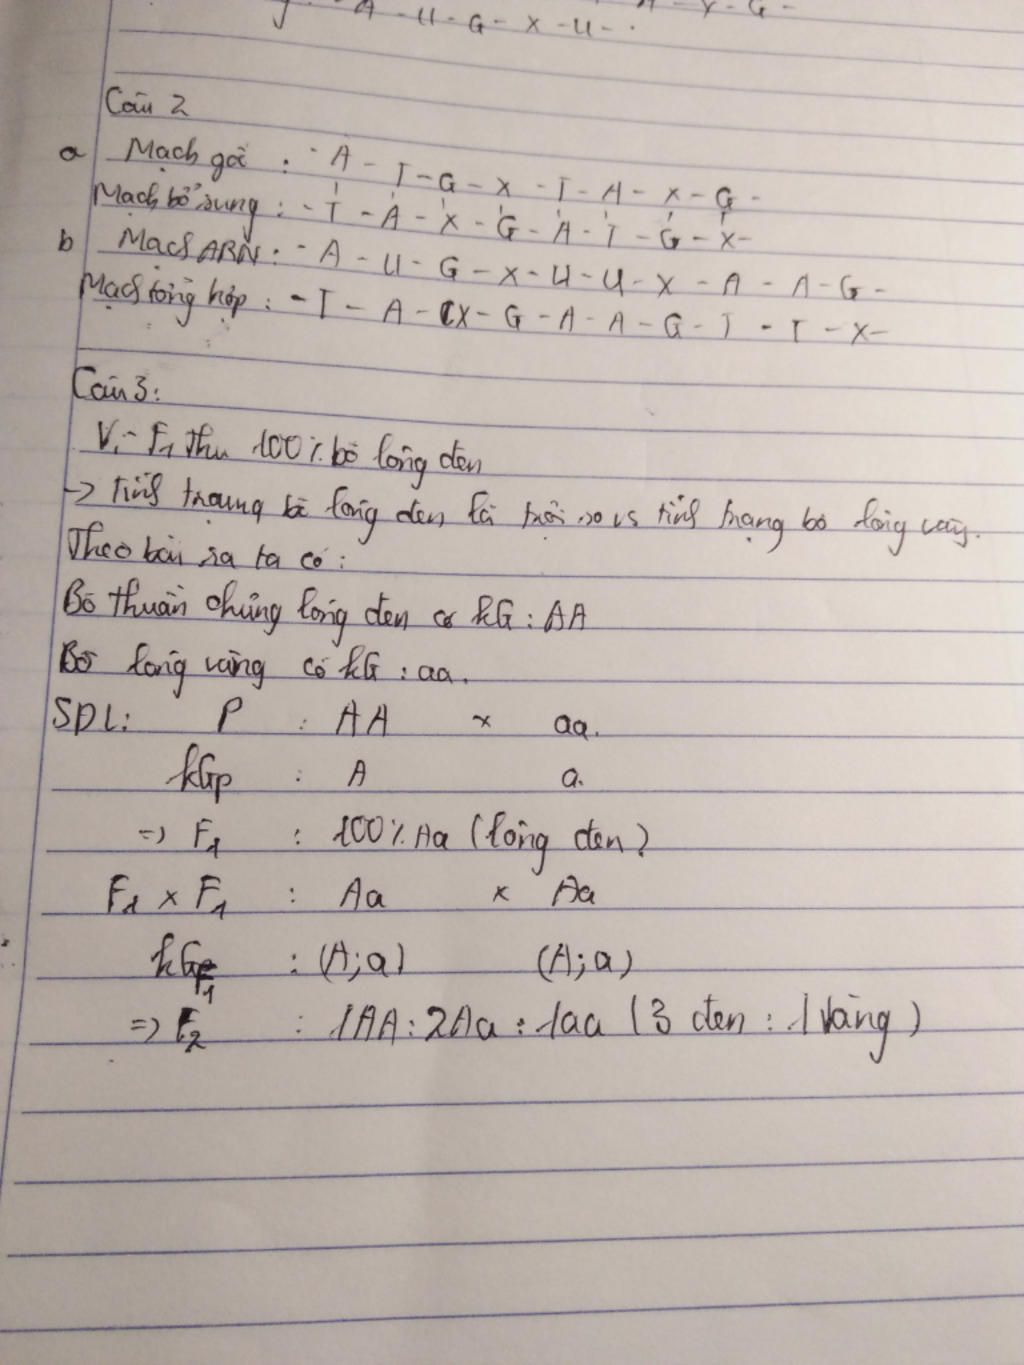 A - U - G - X - U -
Câu 2
a Mạch gốc : - A - T - G - X - T - A - X - G -
Mạch bổ sung : - T - A - X - G - A - T - G - X -
b Mạch ARN : - A - U - G - X - U - U - X - A - A - G -
Mạch tổng hợp : - T - A - X - G - A - A - G - T - T - X -
Câu 3:
Vì F1 thu 100% bò lông đen
-> tính trạng bò lông đen là trội so vs tính trạng bò lông vàng.
Theo bài ra ta có :
Bò thuần chủng lông đen có kG : AA
Bò lông vàng có kG : aa.
SDL: P : AA x aa.
kGp : A a.
=> F1 : 100% Aa (lông đen)
F1 x F1 : Aa x Aa
kGF1 : (A;a) (A;a)
=> F2 : 1AA : 2Aa : 1aa (3 đen : 1 Vàng)